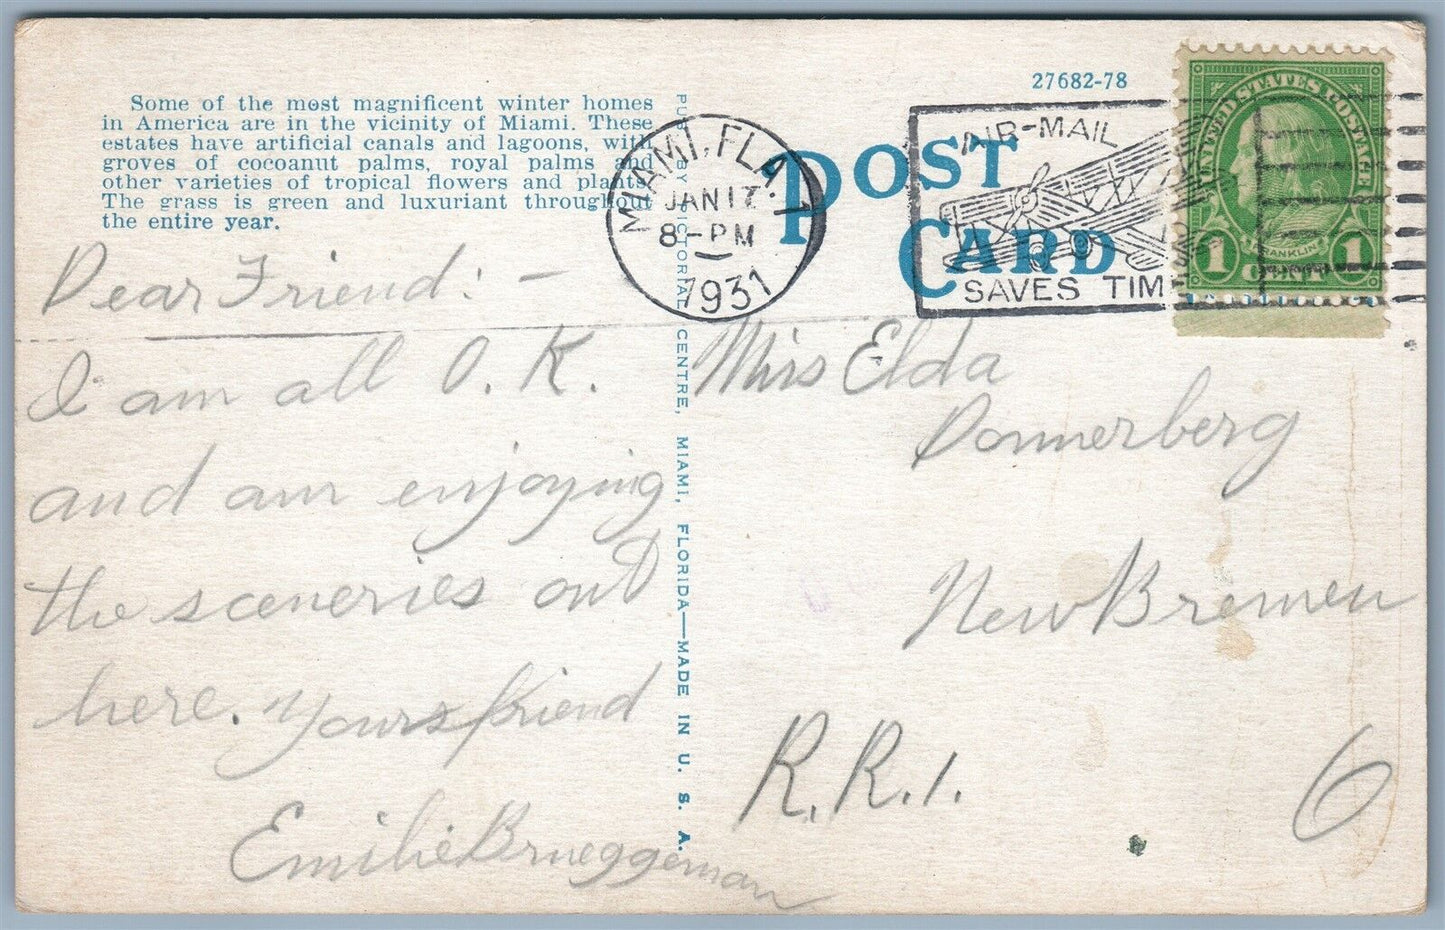 Some of the most magnificent winter homes
in America are in the vicinity of Miami. These
estates have artificial canals and lagoons, with
groves of cocoanut palms, royal palms and
other varieties of tropical flowers and plants.
The grass is green and luxuriant throughout
the entire year.
27682-78
POST
CARD
MIAMI, FLA.
JAN 17
8-PM
1931
AIR-MAIL
SAVES TIME
UNITED STATES POSTAGE
FRANKLIN
1 CENT 1
PUB. BY PICTORIAL CENTRE, MIAMI, FLORIDA—MADE IN U. S. A.
Dear Friend: -
I am all O. K.
and am enjoying
the sceneries out
here. Yours friend
Emilie Brueggeman
Miss Elda
Donnerberg
New Bremen
R. R. 1.
6